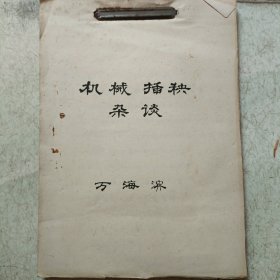 机械 插秧
杂谈
万海